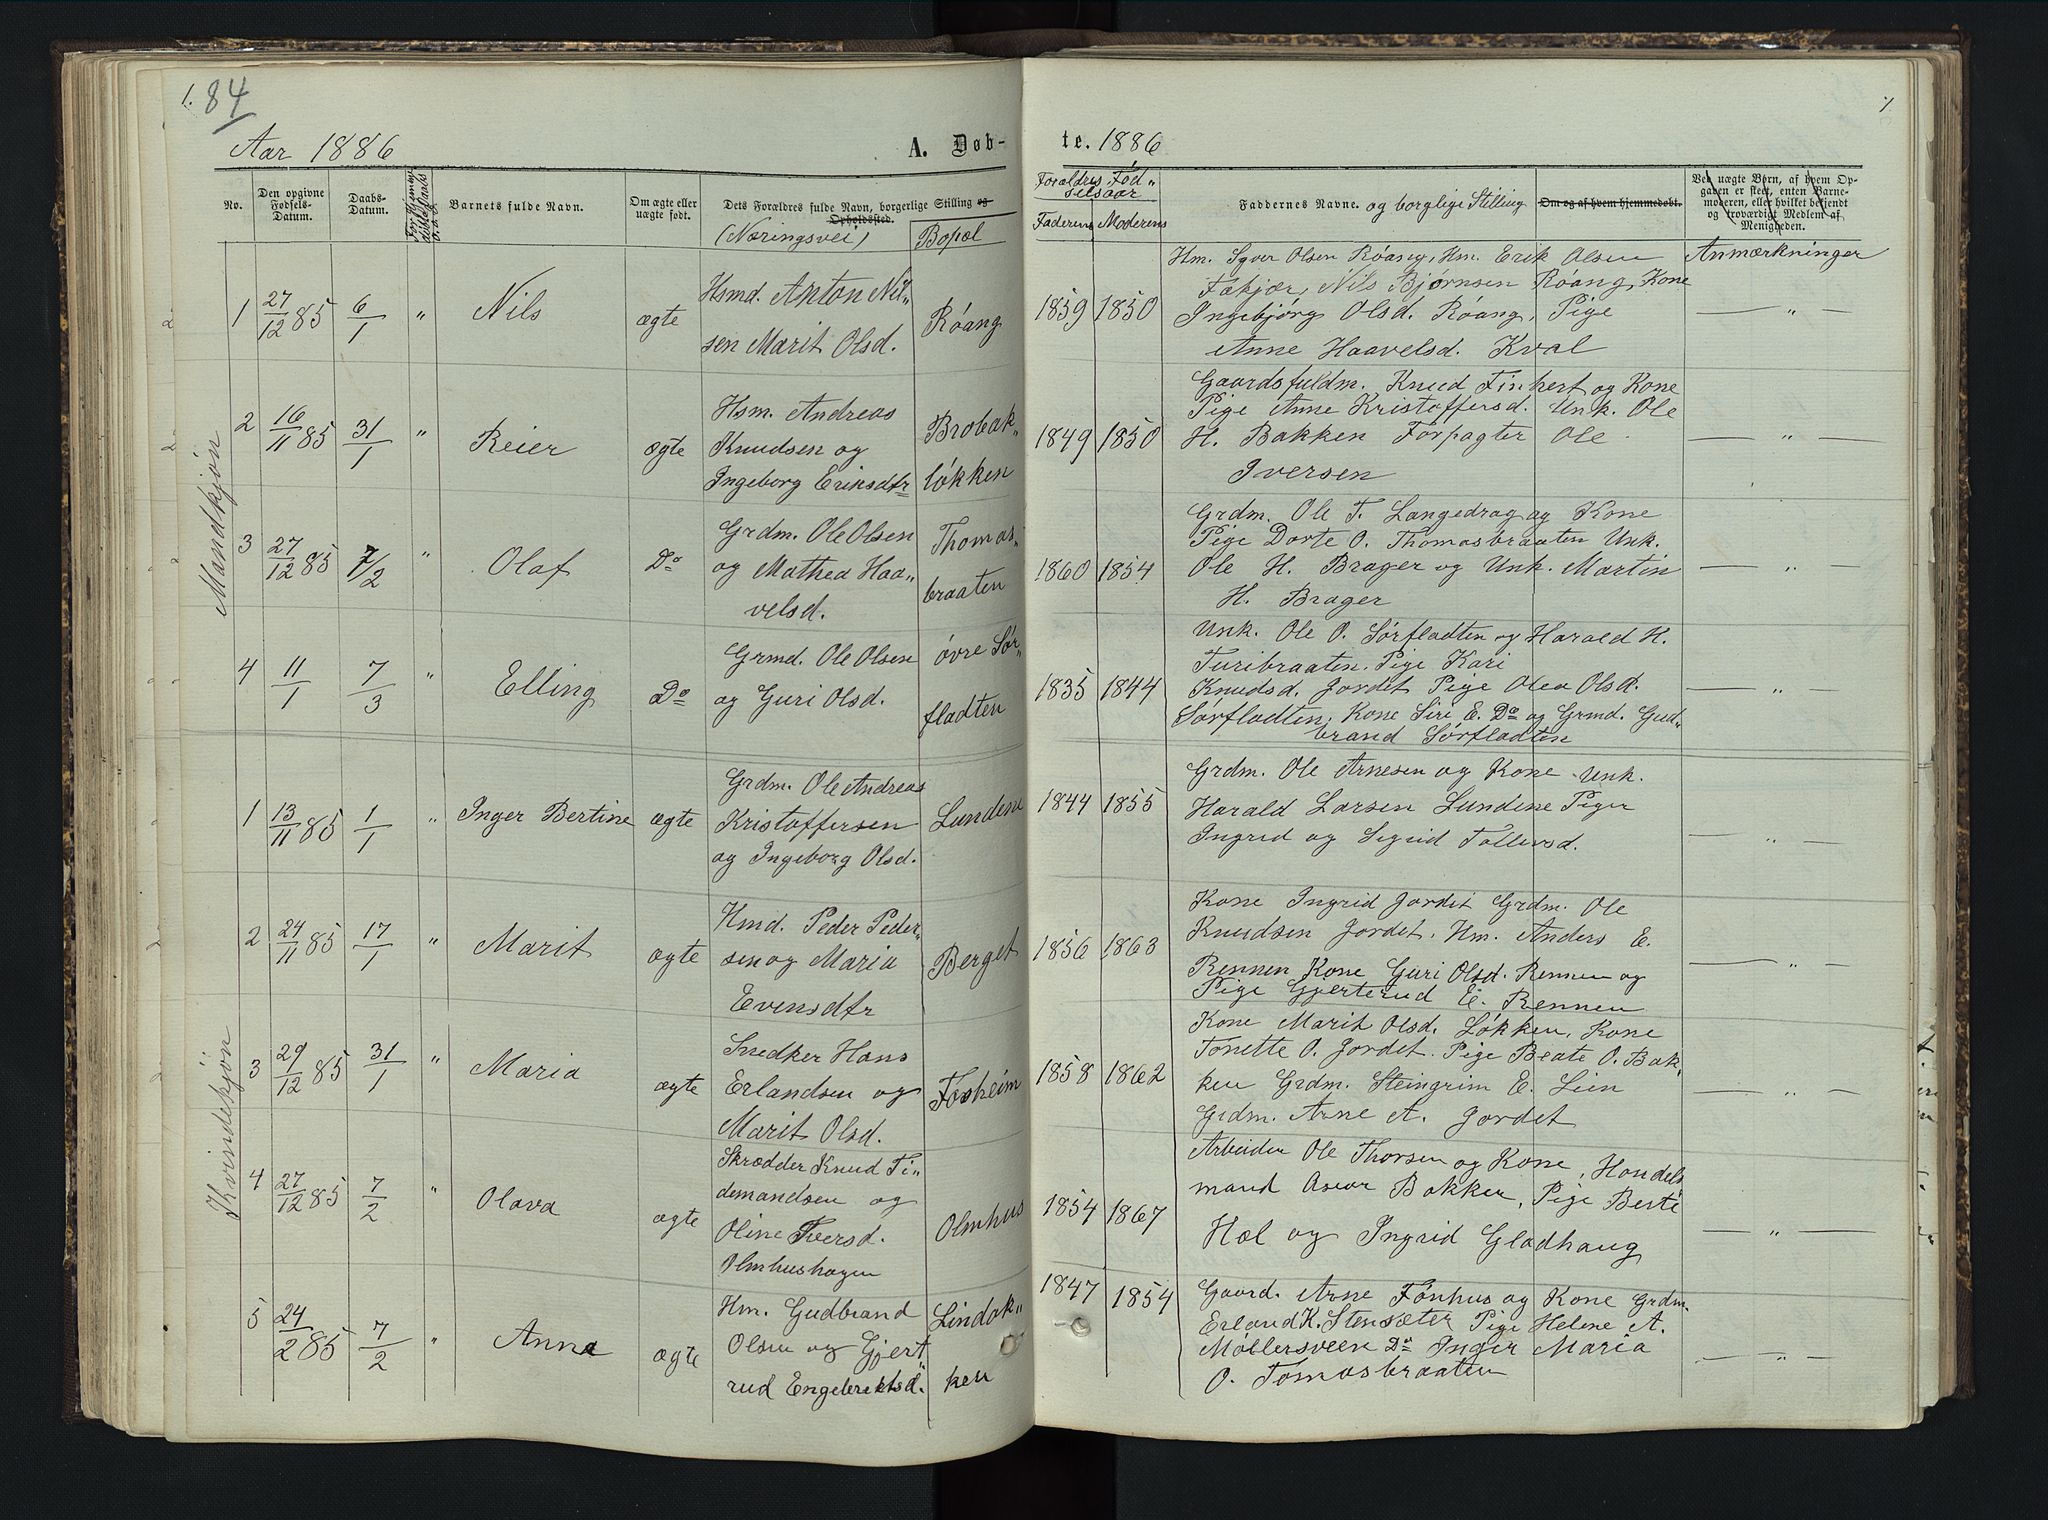 1. 84
Aar 1886
A. Døb-
No.
Den opgivne Fødsels-Datum.
Daabs-Datum.
Barnets fulde Navn.
Om ægte eller uægte født.
Dets Forældres fulde Navn, borgerlige Stilling og Opholdssted.
(Næringsvei)
Bopæl
Mandkjøn
1 27/12 85 6/1 " Nils ægte
Hsmd. Anton Nil-
sen Marit Olsd.
Røang
2 16/11 85 31/1 " Reier ægte
Hsm. Andreas
Knudsen og
Ingeborg Eriksdtr
Brobak-
løkken
3 27/12 85 7/2 " Olaf Do
Grdm. Ole Olsen
og Mathea Haa-
velsd.
Thomas-
braaten
4 11/1 7/3 " Elling Do
Grmd. Ole Olsen
og Guri Olsd.
øvre Sør-
fladten
Kvindekjøn
1 13/11 85 1/1 " Inger Bertine ægte
Grdm. Ole Andreas
Kristoffersen
og Ingeborg Olsd.
Lundene
2 24/11 85 17/1 " Marit ægte
Hmd. Peder Peder-
sen og Maria
Evensdtr
Berget
3 29/12 85 31/1 " Maria ægte
Snedker Hans
Erlandsen og
Marit Olsd.
Fosheim
4 27/12 85 7/2 " Olava ægte
Skrædder Knud Ti-
demandsen og
Oline Iversd.
Olmhushagen
Olmhus
5 24/2 85 7/2 " Anne ægte
Hm. Gudbrand
Olsen og Gjert-
rud Engebrektsd.
Lindak-
ken
te. 1886
Forældres Fød-
selsaar
Faderens Moderens
Faddernes Navne. og borglige Stilling
Om og af hvem hjemmedøbt.
Ved uægte Børn, af hvem Op-
gaven er skeet, enten Barne-
moderen, eller hvilket bekjendt
og troværdigt Medlem af
Menigheden.
Anmærkninger
1859 1850
Hm. Syver Olsen Røang, Hm. Erik Olsen
Fækjær, Nils Bjørnsen Røang, Kone
Ingebjørg Olsd. Røang, Pige
Anne Haavelsd. Kval
— " —
1849 1850
Gaardsfuldm. Knud Finhert og Kone
Pige Anne Kristoffersd. Unk. Ole
H. Bakken Forpagter Ole
Iversen
— " —
1860 1854
Grdm. Ole T. Langedrag og Kone
Pige Dorte O. Thomasbraaten Unk.
Ole H. Brager og Unk. Martin
H. Brager
— " —
1835 1844
Unk. Ole O. Sørfladten og Harald H.
Turibraaten. Pige Kari
Knudsd. Jordet Pige Olea Olsd.
Sørfladten, Kone Siri E. Do og Grmd. Gud-
brand Sørfladten
— " —
1844 1855
Grdm. Ole Arnesen og Kone Unk.
Harald Larsen Lundene Piger
Ingrid og Sigrid Tollevsd.
— " —
1856 1863
Kone Ingrid Jordet Grdm. Ole
Knudsen Jordet, Hm. Anders E.
Rennen Kone Guri Olsd. Rennen og
Pige Gjerterud E. Rennen
— " —
1858 1862
Kone Marit Olsd. Løkken, Kone
Tonette O. Jordet. Pige Beate O. Bak-
ken Grdm. Steingrim E. Lien
Grdm. Arne A. Jordet
— " —
1854 1867
Arbeider Ole Thorsen og Kone, Handels
mand Asvor Bakken, Pige Berte
Hæl og Ingrid Gladhaug
— " —
1847 1854
Gaard. Arne Fønhus og Kone Grdm.
Erland K. Stensæter Pige Helene A.
Møllersveen Do Inger Maria
O. Tomasbraaten
— " —